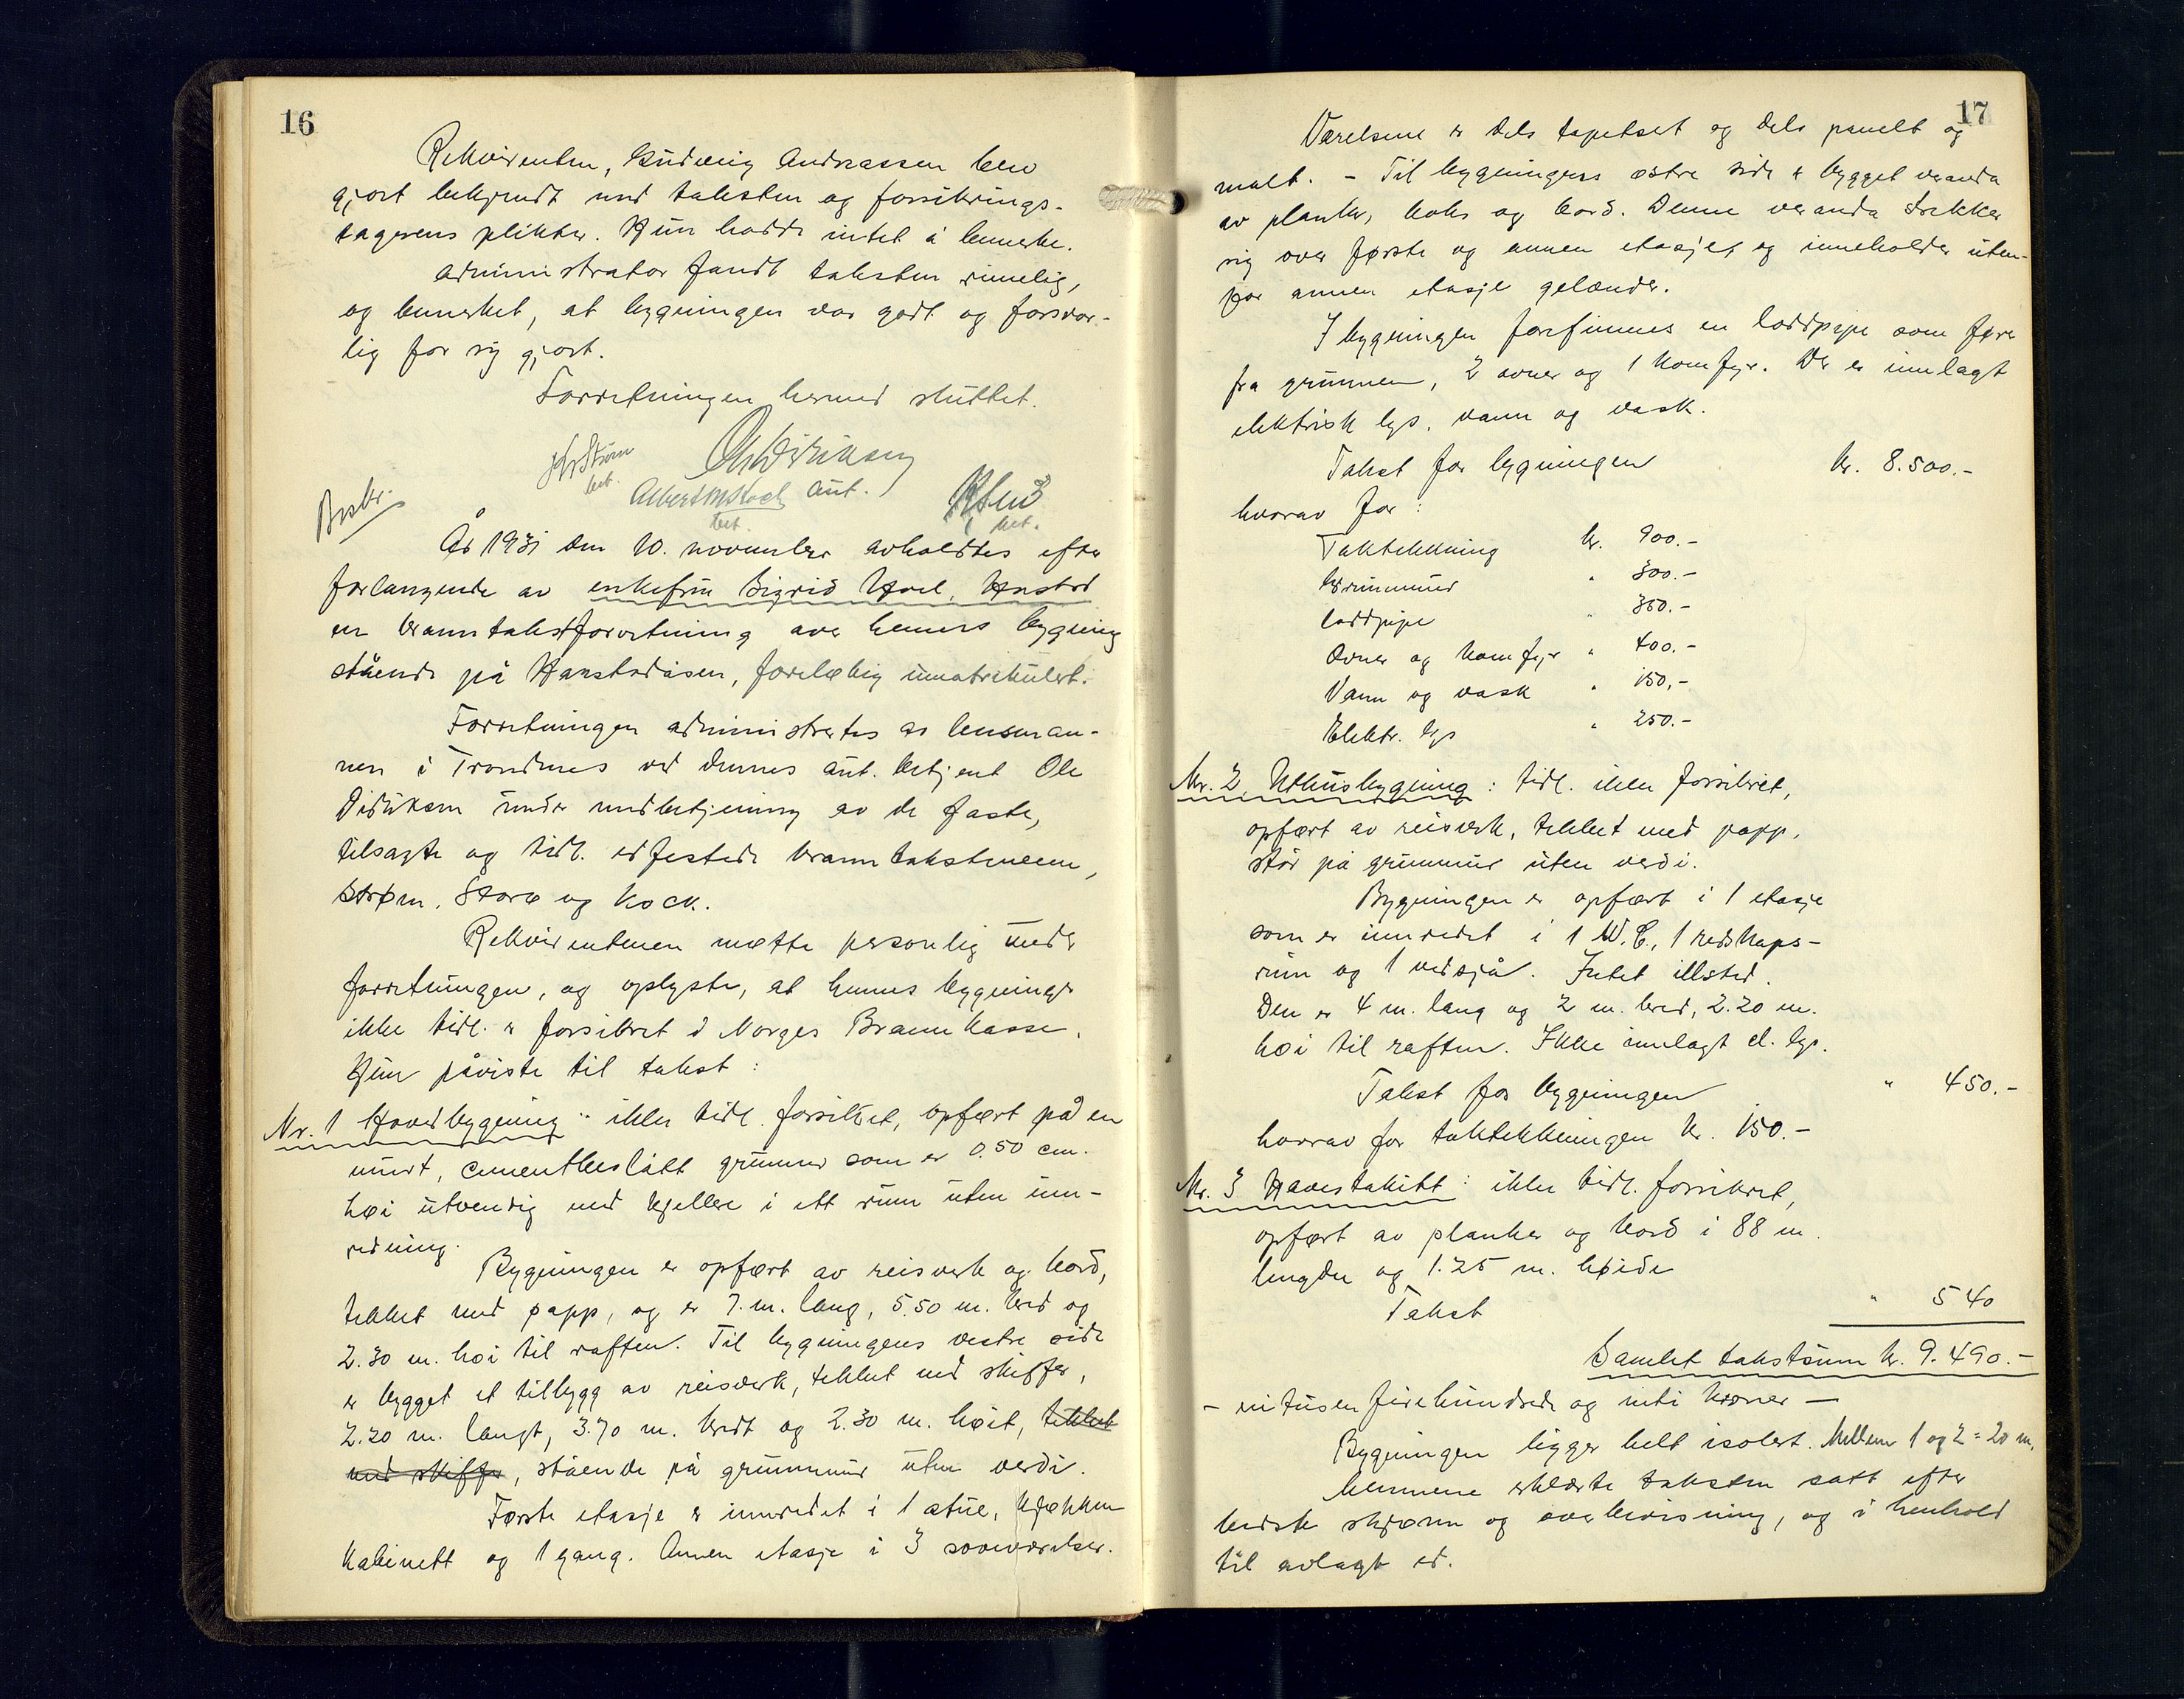 16
Rekvirenten, Ludvig Andreassen blev
gjort bekjendt med taksten og forsikrings-
tagerens plikter. Hun hadde intet å bemerke.
Administrator fandt taksten rimelig,
og bemerket, at bygningen var godt og forsvar-
lig for sig gjort.
Forretningen hermed sluttet.
Strøm
bet.
Ole Didriksen
aut.
bet.
bet.
Beskr.
År 1931 den 10. november avholdtes efter
forlangende av enkefru Sigrid Hoel, Harstad
en branntakstforretning over hennes bygning
stående på Harstadåsen, foreløbig umatrikulert.
Forretningen administrertes av lensman-
nen i Trondenes ved dennes aut. betjent Ole
Didriksen under medbetjening av de faste,
tilsagte og tidl. edfestede branntakstmenn,
Strøm, Storø og Kock.
Rekvirentinnen møtte personlig under
forretningen, og oplyste, at hennes bygninger
ikke tidl. er forsikret i Norges Brannkasse.
Hun påviste til takst:
Nr. 1 Hovedbygning: ikke tidl. forsikret, opført på en
murt, cementbeslått grunnmur som er 0.50 cm.
høi utvendig med kjeller i ett rum uten inn-
redning.
Bygningen er opført av reisverk og bord,
tekket med papp, og er 7. m. lang, 5.50 m. bred og
2.30 m. høi til raften. Til bygningens vestre side
er bygget et tilbygg av reisverk, tekket med skiffer,
2.20 m. langt, 3.70 m. bredt og 2.30 m. høit, tekket
med skiffer, stående på grunnmur uten verdi.
Første etasje er innredet i 1 stue, kjøkken
kabinett og 1 gang. Annen etasje i 3 soveværelser.
17
Værelsene er dels tapetsert og dels panelt og
malt. - Til bygningens østre side er bygget veranda
av planker, boks og bord. Denne veranda strekker
sig over første og annen etasje, og inneholder uten-
for annen etasje gelænder.
I bygningen forefinnes en loddpipe som fører
fra grunnen, 2 ovner og 1 komfyr. Der er innlagt
elektrisk lys, vann og vask.
Takst for bygningen kr. 8.500.-
hvorav for:
Taktekkning kr. 900.-
Grunnmur " 300.-
Loddpipe " 350.-
Ovner og komfyr " 400.-
Vann og vask " 150,-
Elektr. lys " 250.-
Nr. 2 Uthusbygning: tidl. ikke forsikret,
opført av reisverk, tekket med papp,
står på grunnmur uten verdi.
Bygningen er opført i 1 etasje
som er innredet i 1 W.C., 1 redskaps-
rum og 1 vedsjå. Intet illsted.
Den er 4 m. lang og 2 m. bred, 2.20 m.
høi til raften. Ikke innlagt el. lys.
Takst for bygningen " 450.-
hvorav for taktekkningen kr. 150.-
Nr. 3 Havestakitt: ikke tidl. forsikret,
opført av planker og bord i 88 m.
lengde og 1.25 m. høide
Takst " 540
Samlet takstsum kr. 9.490.-
- nitusen firehundrede og nitti kroner -
Bygningen ligger helt isolert. Mellem 1 og 2 = 20 m.
Mennene erklærte taksten satt efter
bedste skjønn og overbevisning, og i henhold
til avlagt ed.